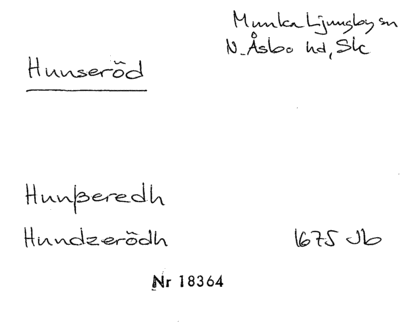 Munka Ljungby sn
N. Åsbo hd, Sk
Hunseröd
Hunßeredh
Hundzerödh 1675 Jb
Nr 18364